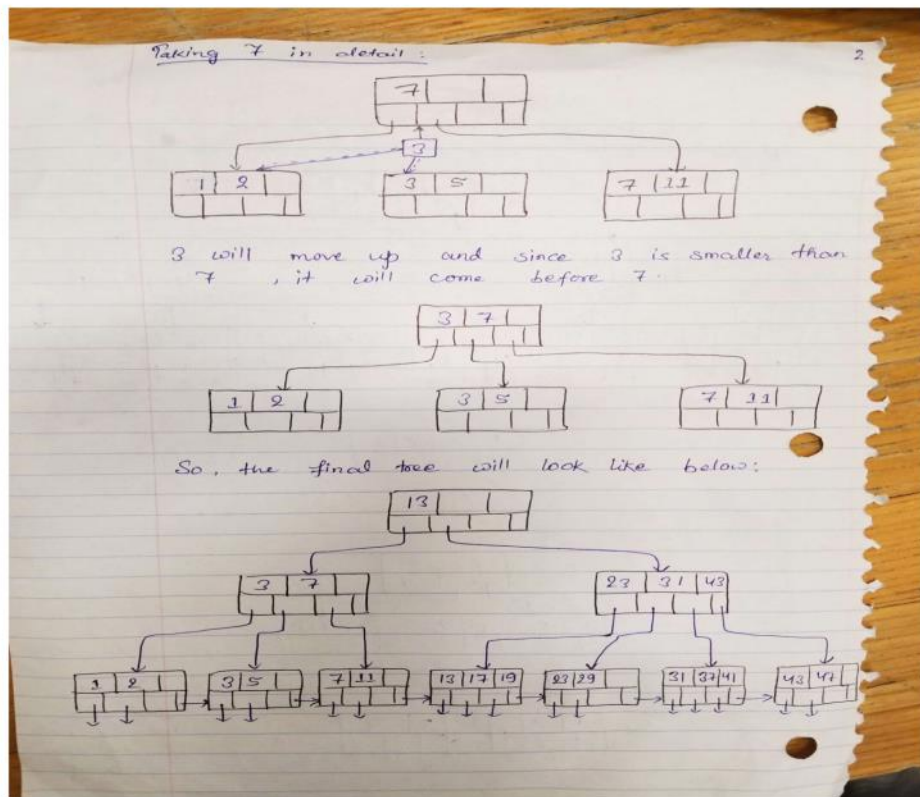 Taking 7 in detail :
2
7
3
1 2
3 5
7 11
3 will move up and since 3 is smaller than
7 , it will come before 7.
3 7
1 2
3 5
7 11
So, the final tree will look like below:
13
3 7
23 31 43
1 2
3 5
7 11
13 17 19
23 29
31 37 41
43 47